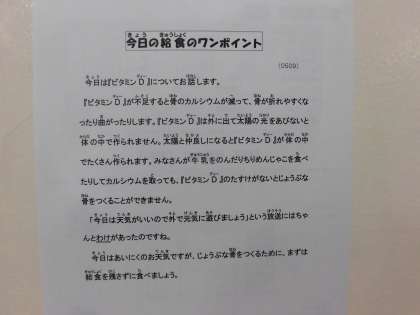 今日の給食のワンポイント
(0609)
今日は『ビタミンD』についてお話します。
『ビタミンD』が不足すると骨のカルシウムが減って、骨が折れやすくな
ったり曲がったりします。『ビタミンD』は外に出て太陽の光をあびないと
体の中で作られません。太陽と仲良しになると『ビタミンD』が体の中
でたくさん作られます。みなさんが牛乳をのんだりちりめんじゃこを食べ
たりしてカルシウムを取っても、『ビタミンD』のたすけがないとじょうぶな
骨をつくることができません。
「今日は天気がいいので外で元気に遊びましょう」という放送にはちゃ
んとわけがあったのですね。
今日はあいにくのお天気ですが、じょうぶな骨をつくるために、まずは
給食を残さずに食べましょう。